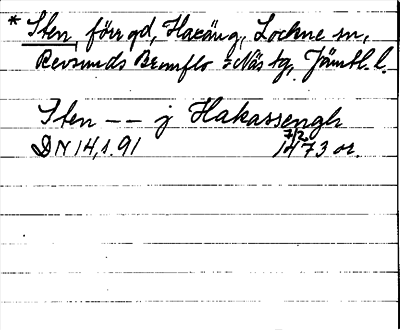 * Sten, förr gd, Haxäng, Lockne sn,
Revsunds Brunflo o Näs tg, Jämtl. l.
Sten -- j Hakassengh
DN 14, s. 91 7/2 1473 or.